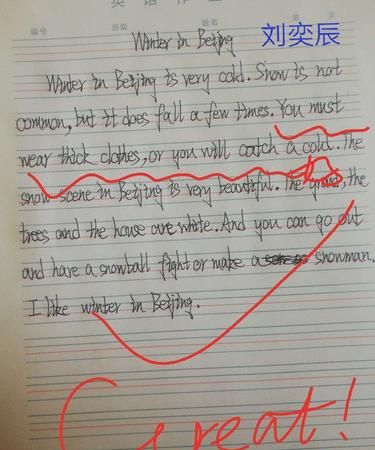 英语作业
编号 班级 姓名 第 页
Winter in Beijing 刘奕辰
Winter in Beijing is very cold. Snow is not
common, but it does fall a few times. You must
wear thick clothes, or you will catch a cold. The
snow scene in Beijing is very beautiful. The the
trees and the house are white. And you can go out
and have a snowball fight or make a snowman.
I like winter in Beijing.
Great!